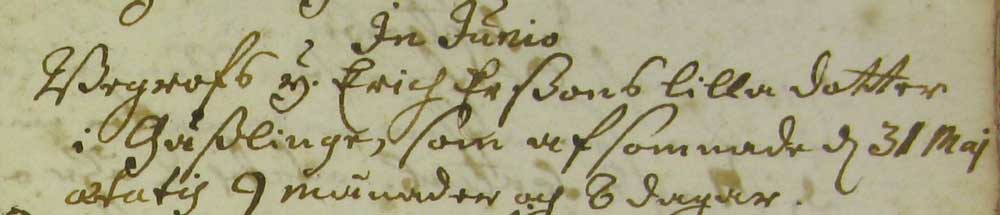 In Junio
Begrofs d. Erich Erssons lilla dotter
i Hässlinge, som af somnade d 31 Maj
ætatis 9 månader och 6 dagar.